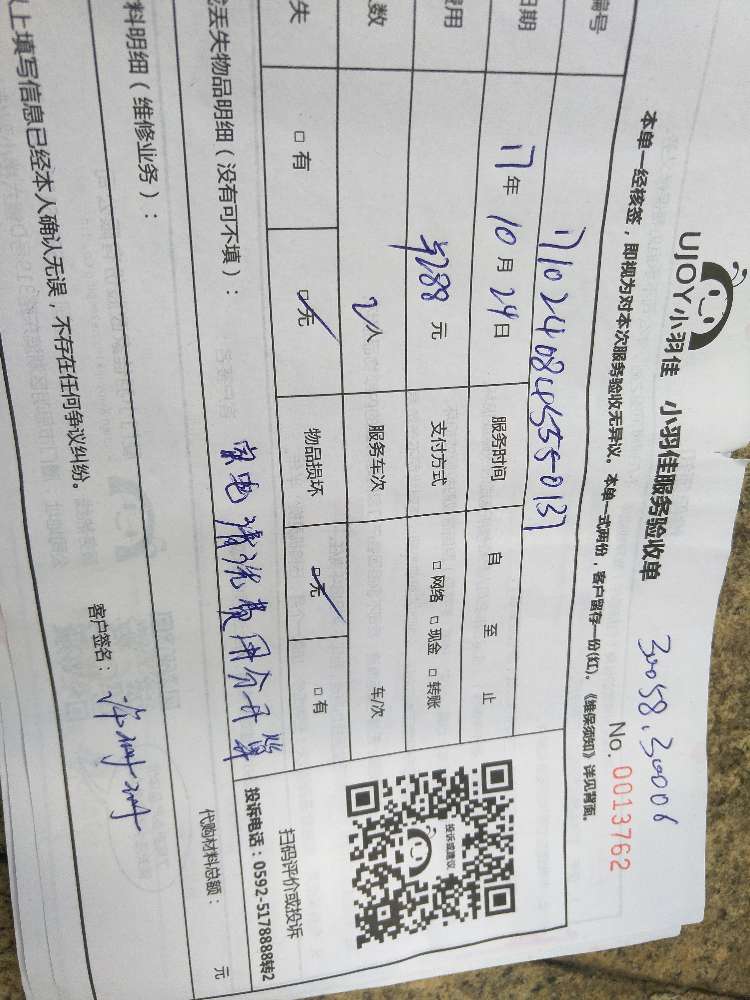 UJOY小羽佳 小羽佳服务验收单
30058.30006
No. 0013762
本单一经核签，即视为对本次服务验收无异议。本单一式两份，客户留存一份(红)。《维保须知》详见背面。
编号 171024084555-0137
日期 17年 10月 24日 服务时间 自 至 止
费用 288元 支付方式 □网络 □现金 □转账
数 2人 服务车次 车/次
失 □有 □无 物品损坏 □无 □有
丢失物品明细（没有可不填）：
家电清洗费用分开算
投诉或建议
扫码评价或投诉
投诉电话：0592-5178888转2
料明细（维修业务）：
代购材料总额： 元
以上填写信息已经本人确认无误，不存在任何争议纠纷。
客户签名：